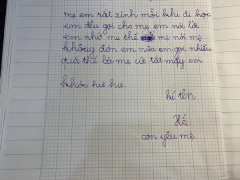 mẹ em rất xinh mỗi khi đi học
em đều gọi cho mẹ em nói là
em nhớ mẹ thế mẹ nói mẹ
không đón em nữa em gọi nhiều
quá thế là mẹ cúp tắt máy em
khóc hu hu.
kí tên
Hà
con yêu mẹ